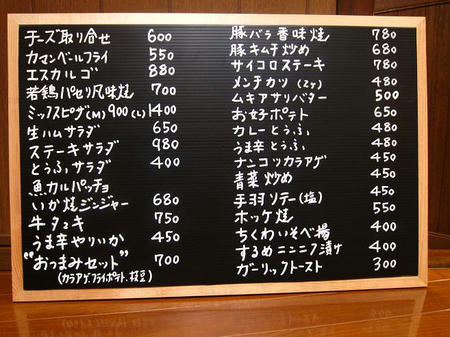 チーズ取り合せ 600
カマンベールフライ 550
エスカルゴ 880
若鶏パセリ風味焼 700
ミックスピザ(M)900(L)1400
生ハムサラダ 650
ステーキサラダ 980
とうふサラダ 400
魚カルパッチョ
いか焼ジンジャー 680
牛タタキ 750
うま辛やりいか 450
"おつまみセット" 700
(カラアゲ、フライポテト、枝豆)
豚バラ香味焼 780
豚キムチ炒め 680
サイコロステーキ 780
メンチカツ(2ヶ) 480
ムキアサリバター 500
お好みポテト 650
カレーとうふ 480
うま辛とうふ 480
ナンコツカラアゲ 450
青菜炒め 450
手羽ソテー(塩) 450
ホッケ焼 550
ちくわいそべ揚 400
するめニンニク漬け 400
ガーリックトースト 300